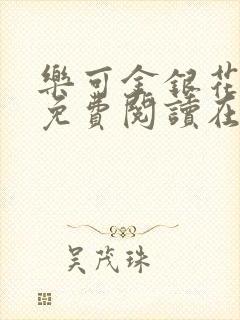 樂可金銀花
免費閱讀在
吴茂珠